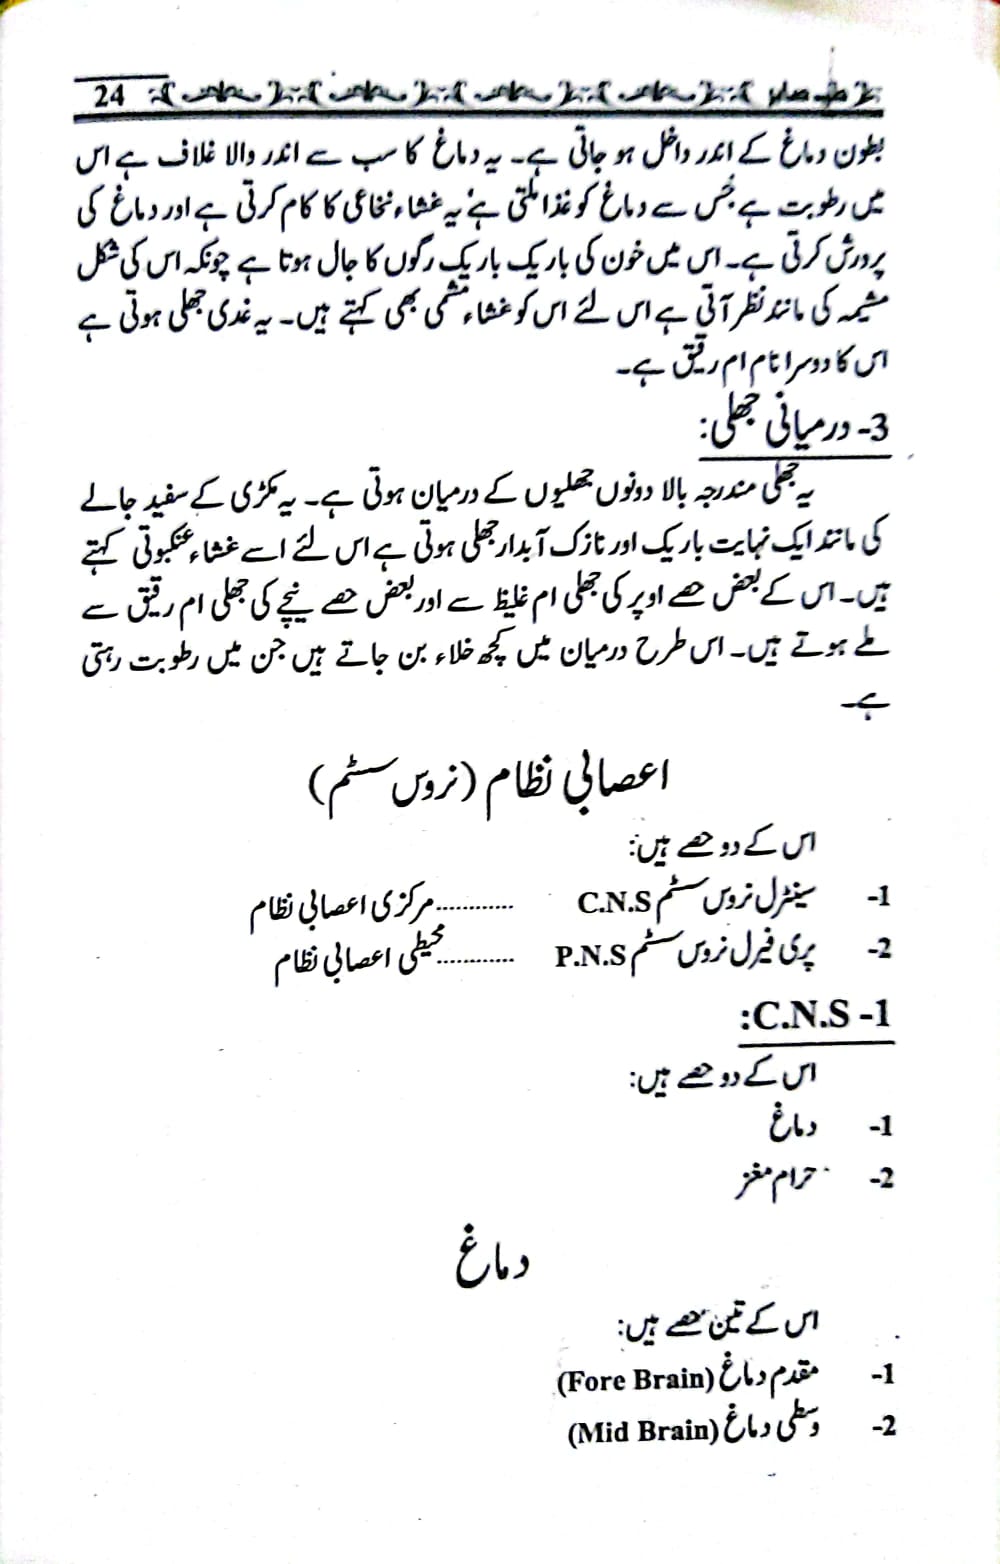 طب صابر 24
بطون دماغ کے اندر داخل ہو جاتی ہے۔ یہ دماغ کا سب سے اندر والا غلاف ہے اس
میں رطوبت ہے جس سے دماغ کو غذا ملتی ہے‘ یہ غشاء نخاعی کا کام کرتی ہے اور دماغ کی
پرورش کرتی ہے۔ اس میں خون کی باریک باریک رگوں کا جال ہوتا ہے چونکہ اس کی شکل
مشیمہ کی مانند نظر آتی ہے اس لئے اس کو غشاء مشمی بھی کہتے ہیں۔ یہ غدی جھلی ہوتی ہے
اس کا دوسرا نام ام رقیق ہے۔
3- درمیانی جھلی:
یہ جھلی مندرجہ بالا دونوں جھلیوں کے درمیان ہوتی ہے۔ یہ مکڑی کے سفید جالے
کی مانند ایک نہایت باریک اور نازک آبدار جھلی ہوتی ہے اس لئے اسے غشاء عنکبوتی کہتے
ہیں۔ اس کے بعض حصے اوپر کی جھلی ام غلیظ سے اور بعض حصے نیچے کی جھلی ام رقیق سے
ملے ہوتے ہیں۔ اس طرح درمیان میں کچھ خلاء بن جاتے ہیں جن میں رطوبت رہتی
ہے۔
اعصابی نظام (نروس سسٹم)
اس کے دو حصے ہیں:
1- سینٹرل نروس سسٹم C.N.S ............مرکزی اعصابی نظام
2- پری فیرل نروس سسٹم P.N.S ............محیطی اعصابی نظام
1- C.N.S:
اس کے دو حصے ہیں:
1- دماغ
2- حرام مغز
دماغ
اس کے تین حصے ہیں:
1- مقدم دماغ (Fore Brain)
2- وسطی دماغ (Mid Brain)